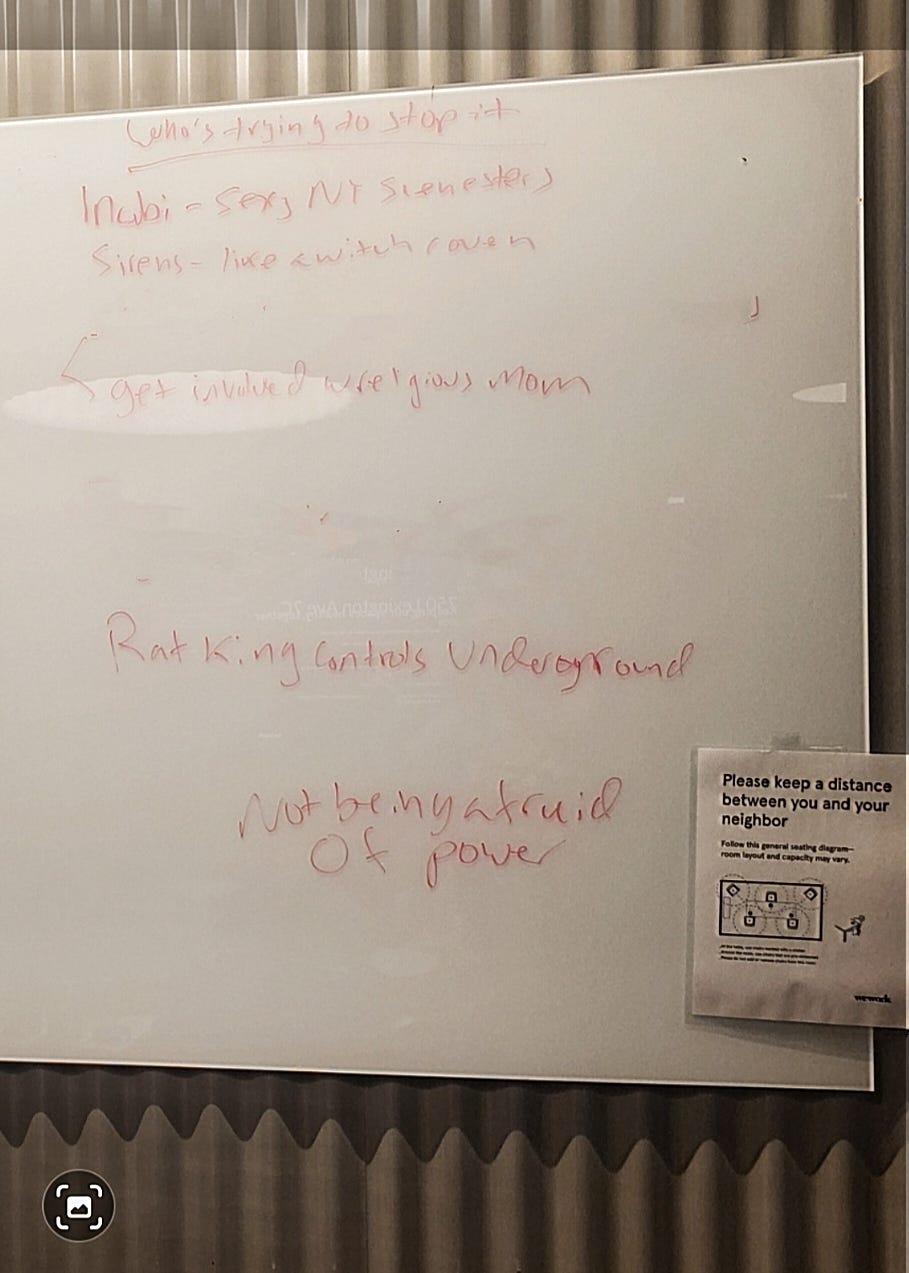 Who's trying to stop it
Incubi - sexy NY scenesters
Sirens - like a witch coven
get involved w religious mom
Rat King controls Underoground
Not being afruid
Of power
Please keep a distance
between you and your
neighbor
Follow this general seating diagram—
room layout and capacity may vary.
wework
750 Lexington Ave